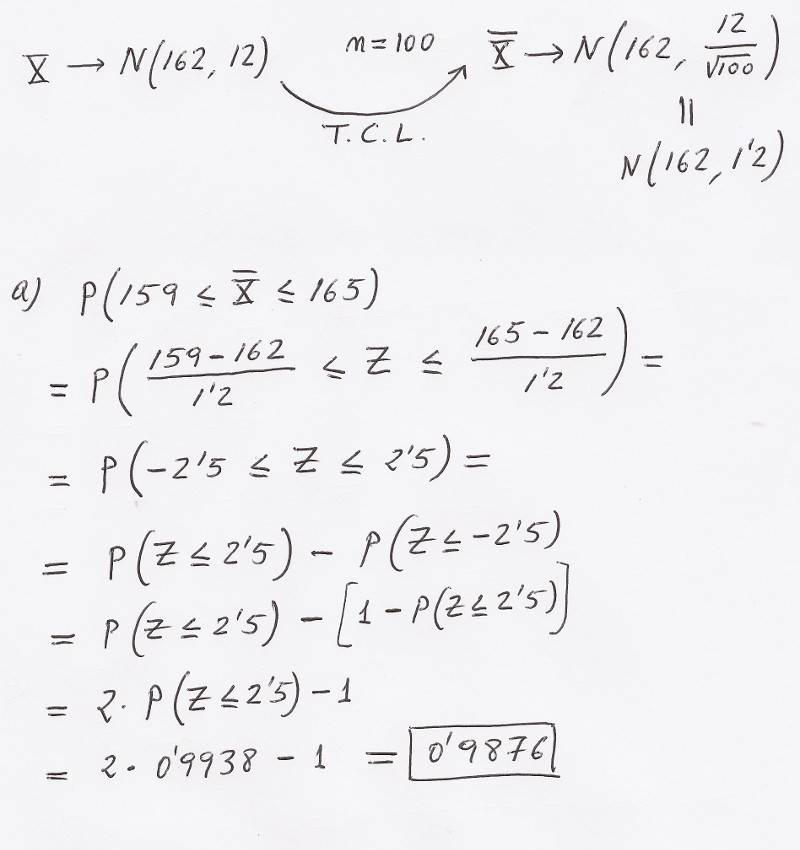 X → N(162, 12) n=100 X̄ → N(162, 12/√100)
T.C.L. ||
N(162, 1'2)
a) P(159 ≤ X̄ ≤ 165)
= P( (159-162)/1'2 ≤ Z ≤ (165-162)/1'2 ) =
= P(-2'5 ≤ Z ≤ 2'5) =
= P(Z ≤ 2'5) - P(Z ≤ -2'5)
= P(Z ≤ 2'5) - [1 - P(Z ≤ 2'5)]
= 2. P(Z ≤ 2'5) - 1
= 2. 0'9938 - 1 = 0'9876